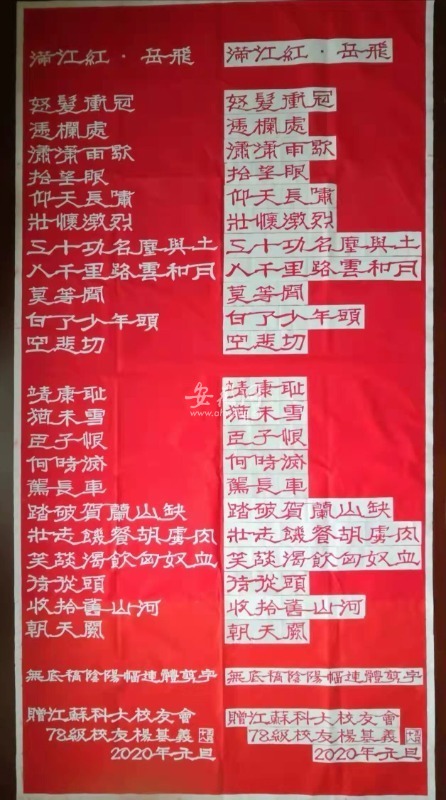 滿江紅·岳飛
怒髮衝冠
憑欄處
瀟瀟雨歇
抬望眼
仰天長嘯
壯懷激烈
三十功名塵與土
八千里路雲和月
莫等閒
白了少年頭
空悲切
靖康耻
猶未雪
臣子恨
何時滅
駕長車
踏破賀蘭山缺
壯志饑餐胡虜肉
笑談渴飲匈奴血
待從頭
收拾舊山河
朝天闕
無底稿陰陽幅連體剪字
贈江蘇科大校友會
78級校友楊基義
2020年元旦
滿江紅·岳飛
怒髮衝冠
憑欄處
瀟瀟雨歇
抬望眼
仰天長嘯
壯懷激烈
三十功名塵與土
八千里路雲和月
莫等閒
白了少年頭
空悲切
靖康耻
猶未雪
臣子恨
何時滅
駕長車
踏破賀蘭山缺
壯志饑餐胡虜肉
笑談渴飲匈奴血
待從頭
收拾舊山河
朝天闕
無底稿陰陽幅連體剪字
贈江蘇科大校友會
78級校友楊基義
2020年元旦